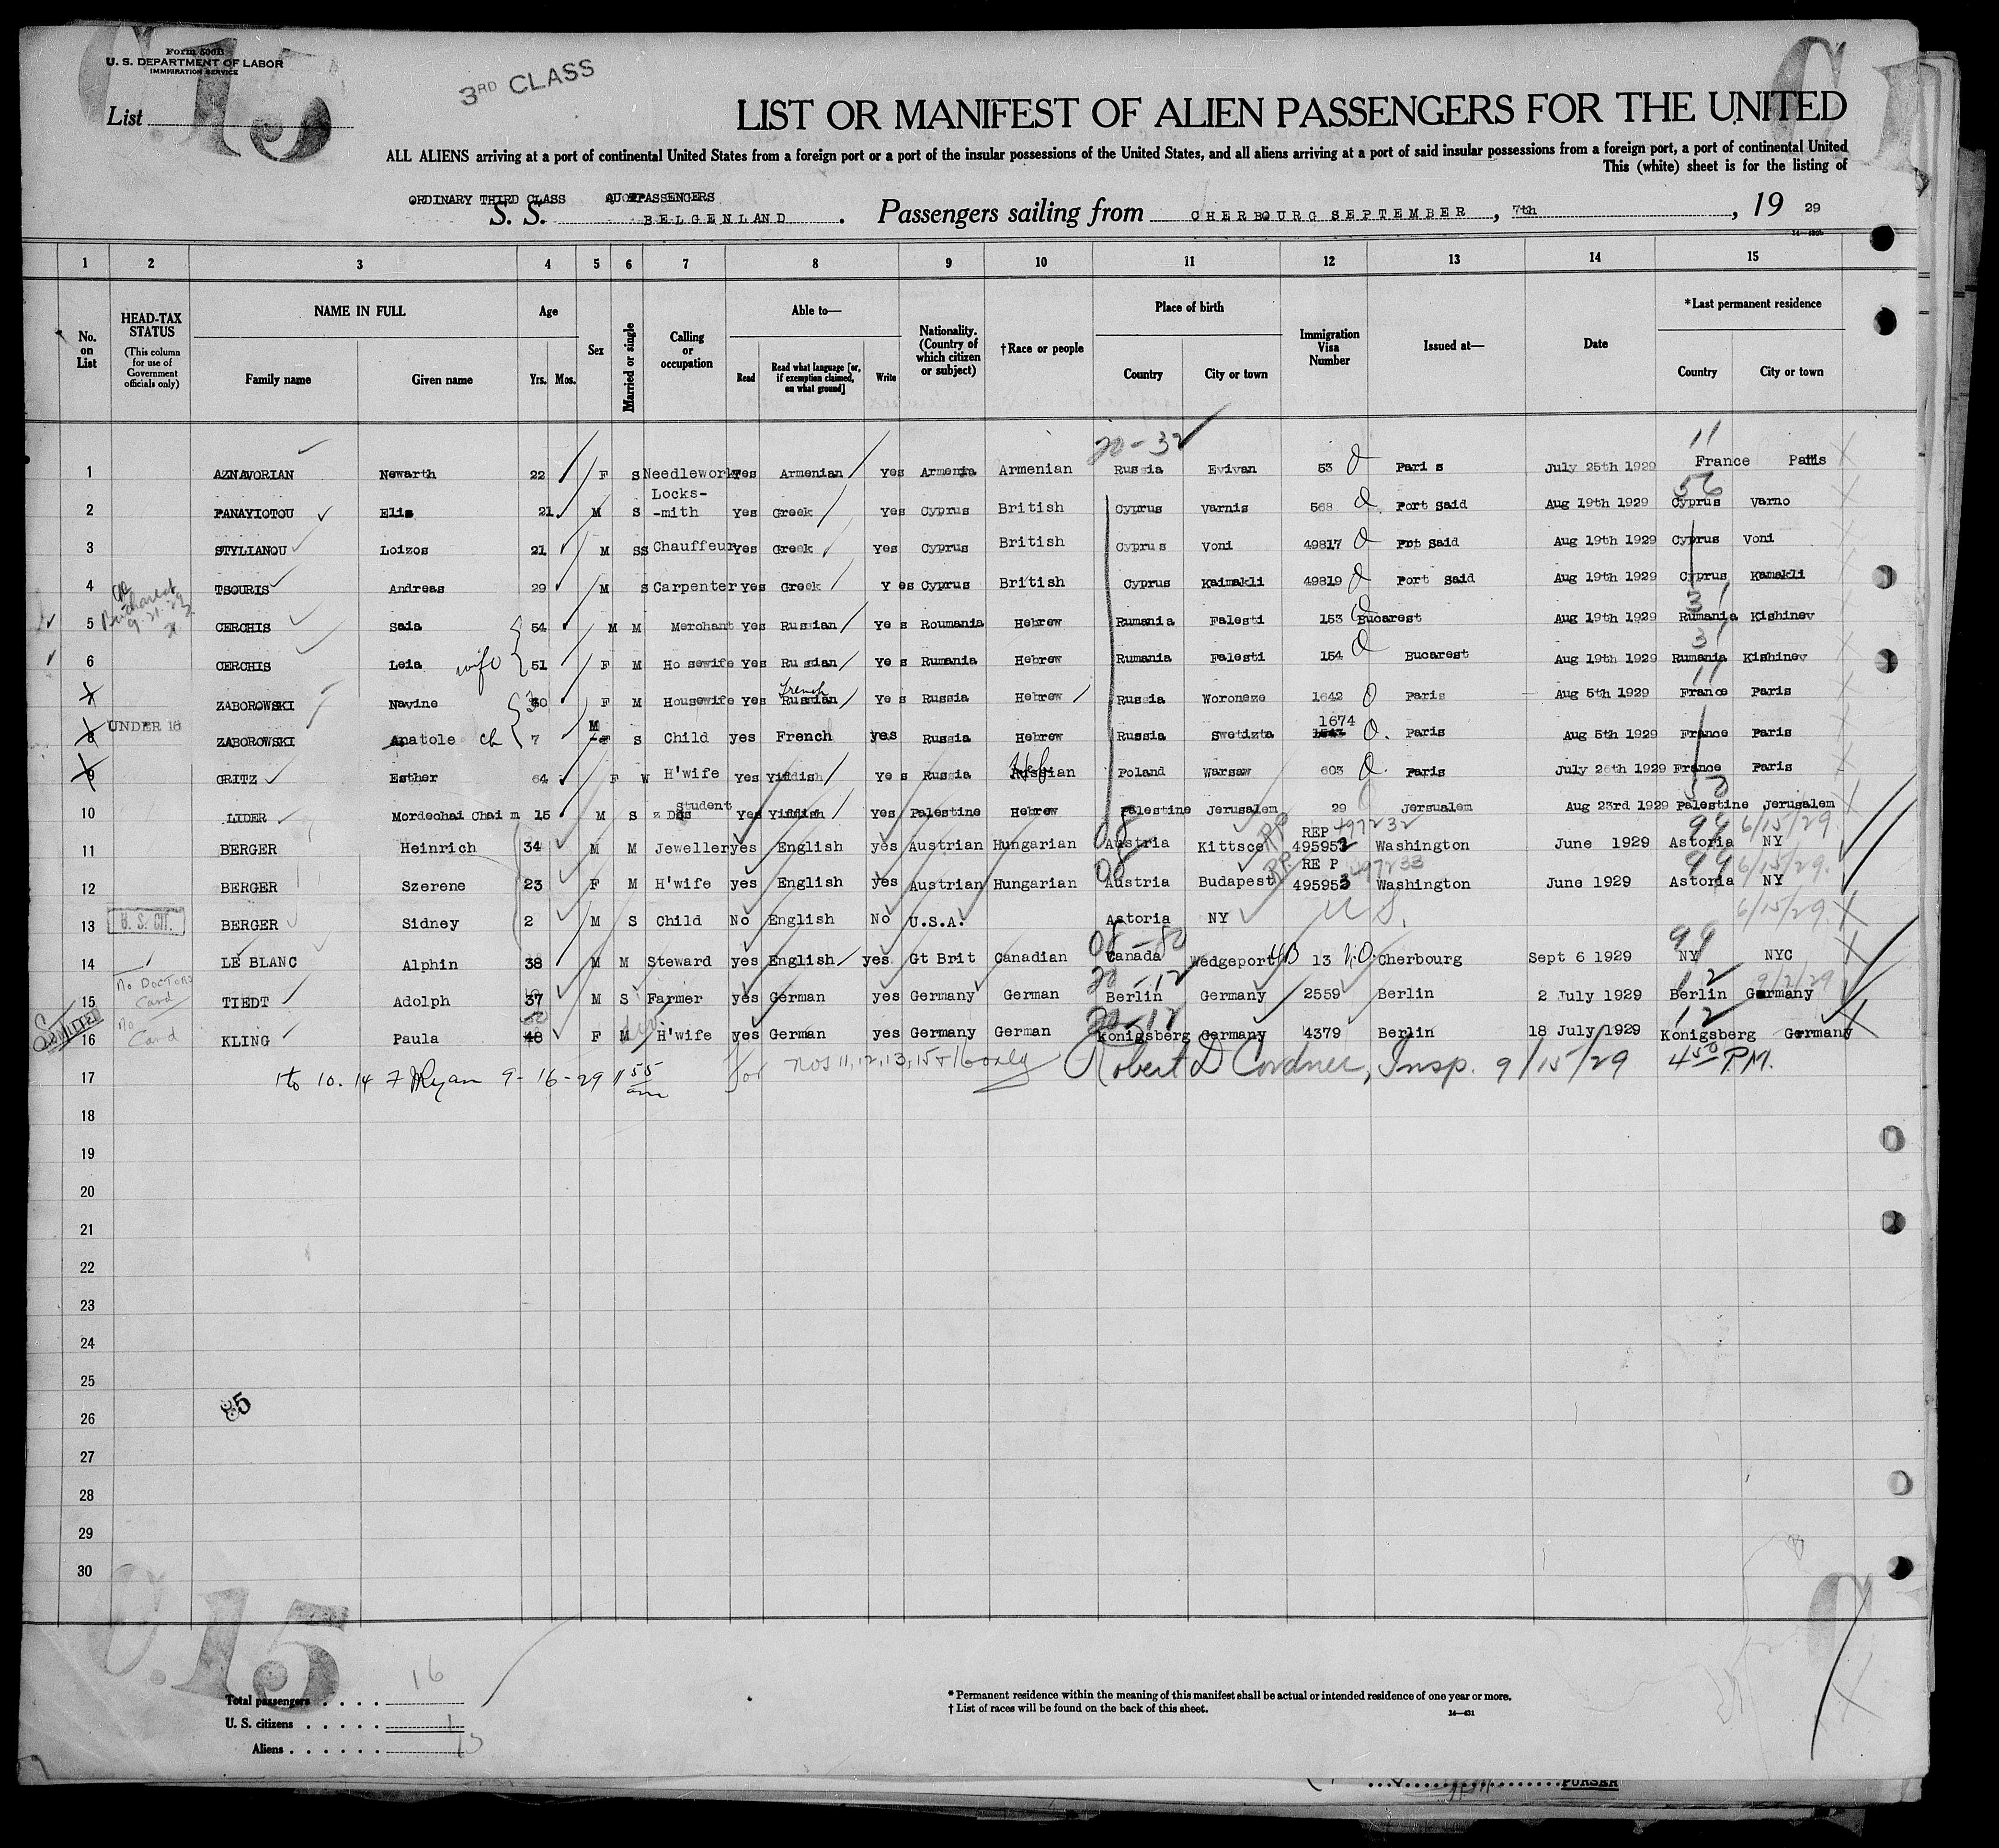 Form 500B
U. S. DEPARTMENT OF LABOR
IMMIGRATION SERVICE
3RD CLASS
List
LIST OR MANIFEST OF ALIEN PASSENGERS FOR THE UNITED
ALL ALIENS arriving at a port of continental United States from a foreign port or a port of the insular possessions of the United States, and all aliens arriving at a port of said insular possessions from a foreign port, a port of continental United
This (white) sheet is for the listing of
ORDINARY THIRD CLASS PASSENGERS
S. S. BELGENLAND . Passengers sailing from CHERBOURG SEPTEMBER , 7th , 19 29
1 2 3 4 5 6 7 8 9 10 11 12 13 14 15
No. on List
HEAD-TAX STATUS (This column for use of Government officials only)
NAME IN FULL Family name Given name
Age Yrs. Mos.
Sex
Married or single
Calling or occupation
Able to— Read Read what language [or, if exemption claimed, on what ground] Write
Nationality. (Country of which citizen or subject)
†Race or people
Place of birth Country City or town
Immigration Visa Number
Issued at—
Date
*Last permanent residence Country City or town
20-32 11
1 AZNAVORIAN Newarth 22 F S Needlework Yes Armenian Yes Armenia Armenian Russia Evivan 53 Paris July 25th 1929 France Paris
56
2 PANAYIOTOU Elis 21 M S Locks-mith Yes Greek Yes Cyprus British Cyprus Varnis 568 Port Said Aug 19th 1929 Cyprus Varno
3 STYLIANOU Loizos 21 M SS Chauffeur Yes Greek Yes Cyprus British Cyprus Voni 49817 Prt Said Aug 19th 1929 Cyprus Voni
4 TSOURIS Andreas 29 M S Carpenter Yes Greek Yes Cyprus British Cyprus Kaimakli 49819 Port Said Aug 19th 1929 Cyprus Kamakli
Bucharest 9-21-29
5 CERCHIS Saia 54 M M Merchant Yes Russian Yes Roumania Hebrew Rumania Falesti 153 Bucarest Aug 19th 1929 Rumania Kishinev
6 CERCHIS Leia wife 51 F M Hosewife Yes Russian Yes Rumania Hebrew Rumania Falesti 154 Bucarest Aug 19th 1929 Rumania Kishinev
7 ZABOROWSKI Navine 30 F M Housewife Yes Russian French Yes Russia Hebrew Russia Woroneze 1642 Paris Aug 5th 1929 France Paris
8 UNDER 16 ZABOROWSKI Anatole ch 7 M S Child yes French yes Russia Hebrew Russia Swetizta 1674 Paris Aug 5th 1929 France Paris
9 GRITZ Esther 64 F W H'wife Yes Yiddish Yes Russia Russian Heb Poland Warsaw 603 Paris July 26th 1929 France Paris
10 LIDER Mordechai Chaim 15 M S Student Yes Yiddish Yes Palestine Hebrew Palestine Jerusalem 29 Jersualem Aug 23rd 1929 Palestine Jerusalem
08 PP REP 497232 99 6/15/29
11 BERGER Heinrich 34 M M Jeweller yes English yes Austrian Hungarian Austria Kittsee 495952 Washington June 1929 Astoria NY
08 PP RE P 497233 99 6/15/29.
12 BERGER Szerene 23 F M H'wife yes English yes Austrian Hungarian Austria Budapest 495953 Washington June 1929 Astoria NY
6/15/29.
13 U. S. CIT. BERGER Sidney 2 M S Child No English No U.S.A. Astoria NY U S.
08-80 99
14 LE BLANC Alphin 38 M M Steward yes English yes Gt Brit Canadian Canada Wedgeport 4B 13 Cherbourg Sept 6 1929 NY NYC
No Doctors Card 20-12 12 9/7/29
15 TIEDT Adolph 37 M S Farmer yes German yes Germany German Berlin Germany 2559 Berlin 2 July 1929 Berlin Germany
ADMITTED No Card 50 20-12 12
16 KLING Paula 48 F M H'wife yes German yes Germany German Konigsberg Germany 4379 Berlin 18 July 1929 Konigsberg Germany
17 1 to 10. 14 F Ryan 9-16-29 11 55 am for nos 11, 12, 13, 15 + 16 only Robert D Cordner, Insp. 9/15/29 4 50 P.M.
18
19
20
21
22
23
24
25
26
27
28
29
30
85
C.15
Total passengers . . . . 16
U. S. citizens . . . . . 1
Aliens . . . . . . 15
* Permanent residence within the meaning of this manifest shall be actual or intended residence of one year or more.
† List of races will be found on the back of this sheet.
14—431
PURSER